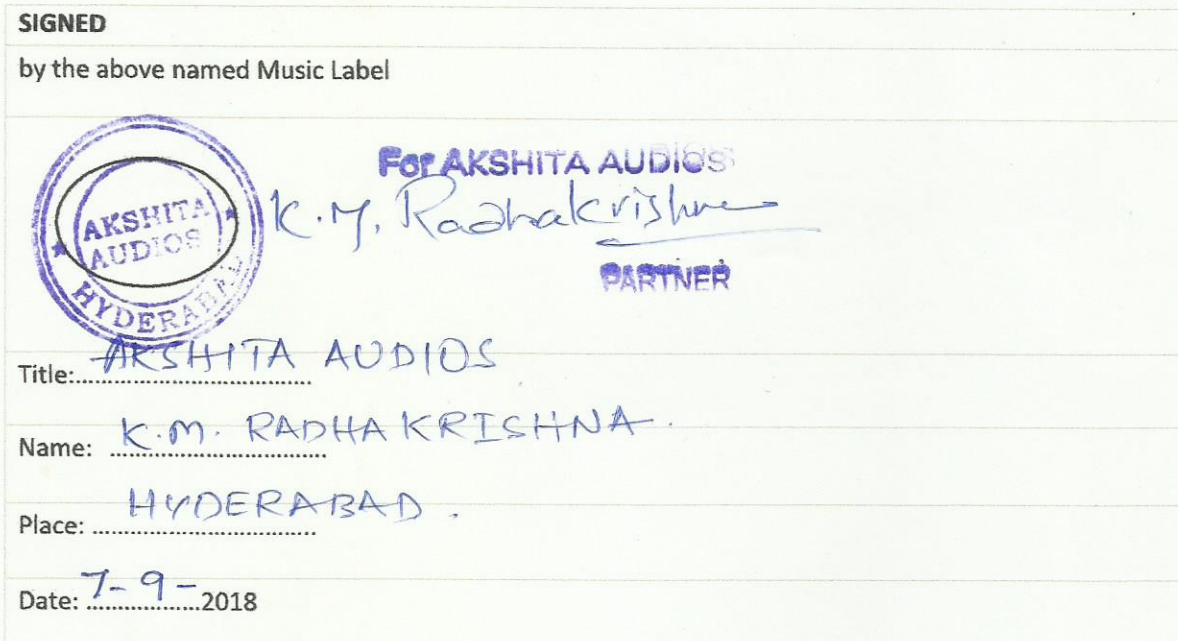 SIGNED
by the above named Music Label
For AKSHITA AUDIOS
K.M. Radhakrishna
AKSHITA
AUDIOS
HYDERABAD
PARTNER
Title:.................................... AKSHITA AUDIOS
Name: ................................. K.M. RADHA KRISHNA.
Place: .................................. HYDERABAD.
Date: 7-9-..................2018